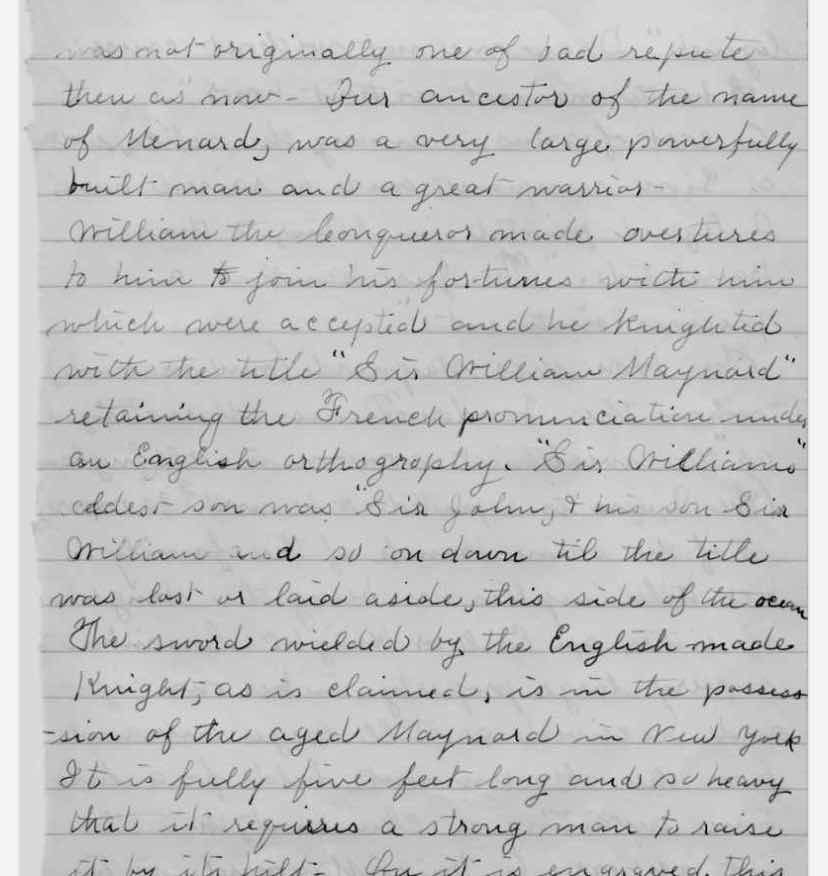 was not originally one of bad repute
then as now - Our ancestor of the name
of Menard, was a very large powerfully
built man and a great warrior -
William the Conqueror made overtures
to him to join his fortunes with him
which were accepted and he knighted
with the title "Sir William Maynard"
retaining the French pronunciation under
an English orthography. "Sir Williams"
eldest son was "Sir John, & his son Sir
William and so on down til the title
was lost or laid aside, this side of the ocean
The sword wielded by the English made
Knight, as is claimed, is in the possess
-sion of the aged Maynard in New York
It is fully five feet long and so heavy
that it requires a strong man to raise
it by its hilt - On it is engraved this